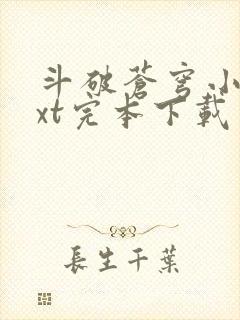 斗破苍穹.小
xt完本下载
長生千葉